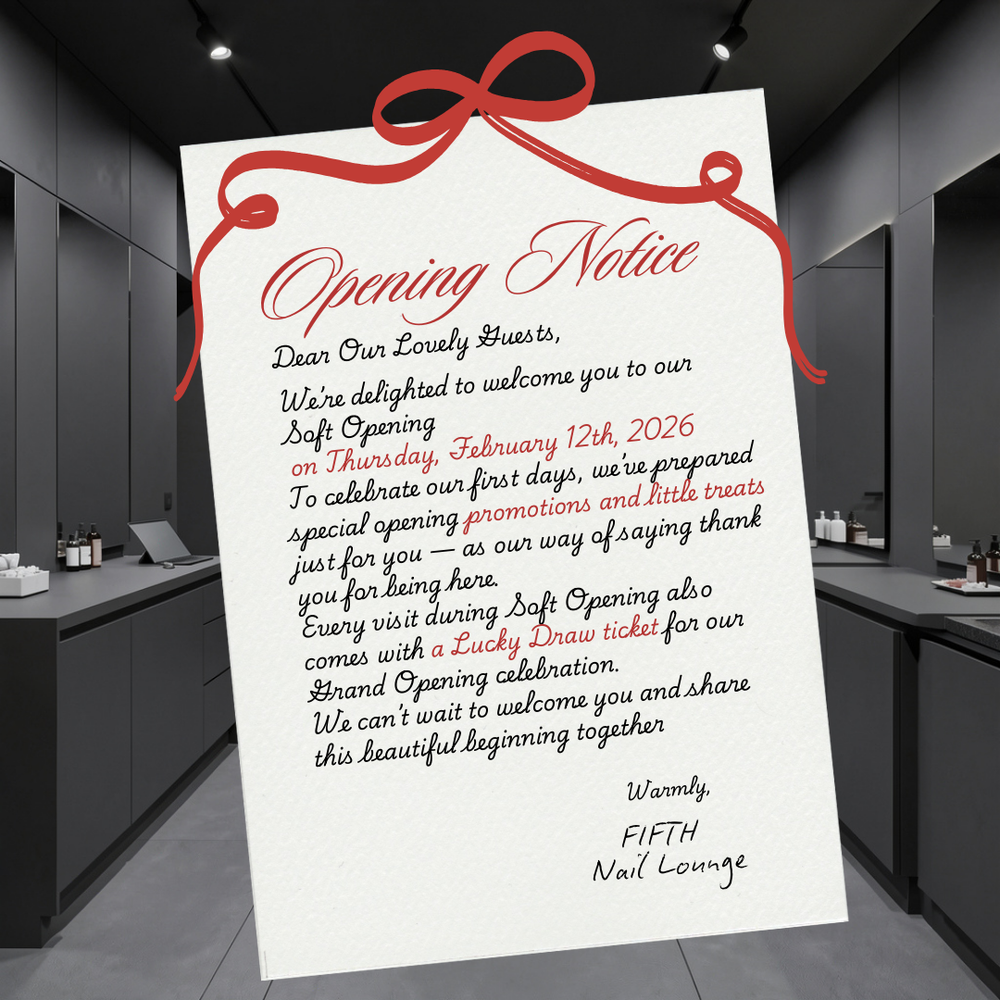 Opening Notice
Dear Our Lovely Guests,
We're delighted to welcome you to our
Soft Opening
on Thursday, February 12th, 2026
To celebrate our first days, we've prepared
special opening promotions and little treats
just for you — as our way of saying thank
you for being here.
Every visit during Soft Opening also
comes with a Lucky Draw ticket for our
Grand Opening celebration.
We can't wait to welcome you and share
this beautiful beginning together
Warmly,
FIFTH
Nail Lounge